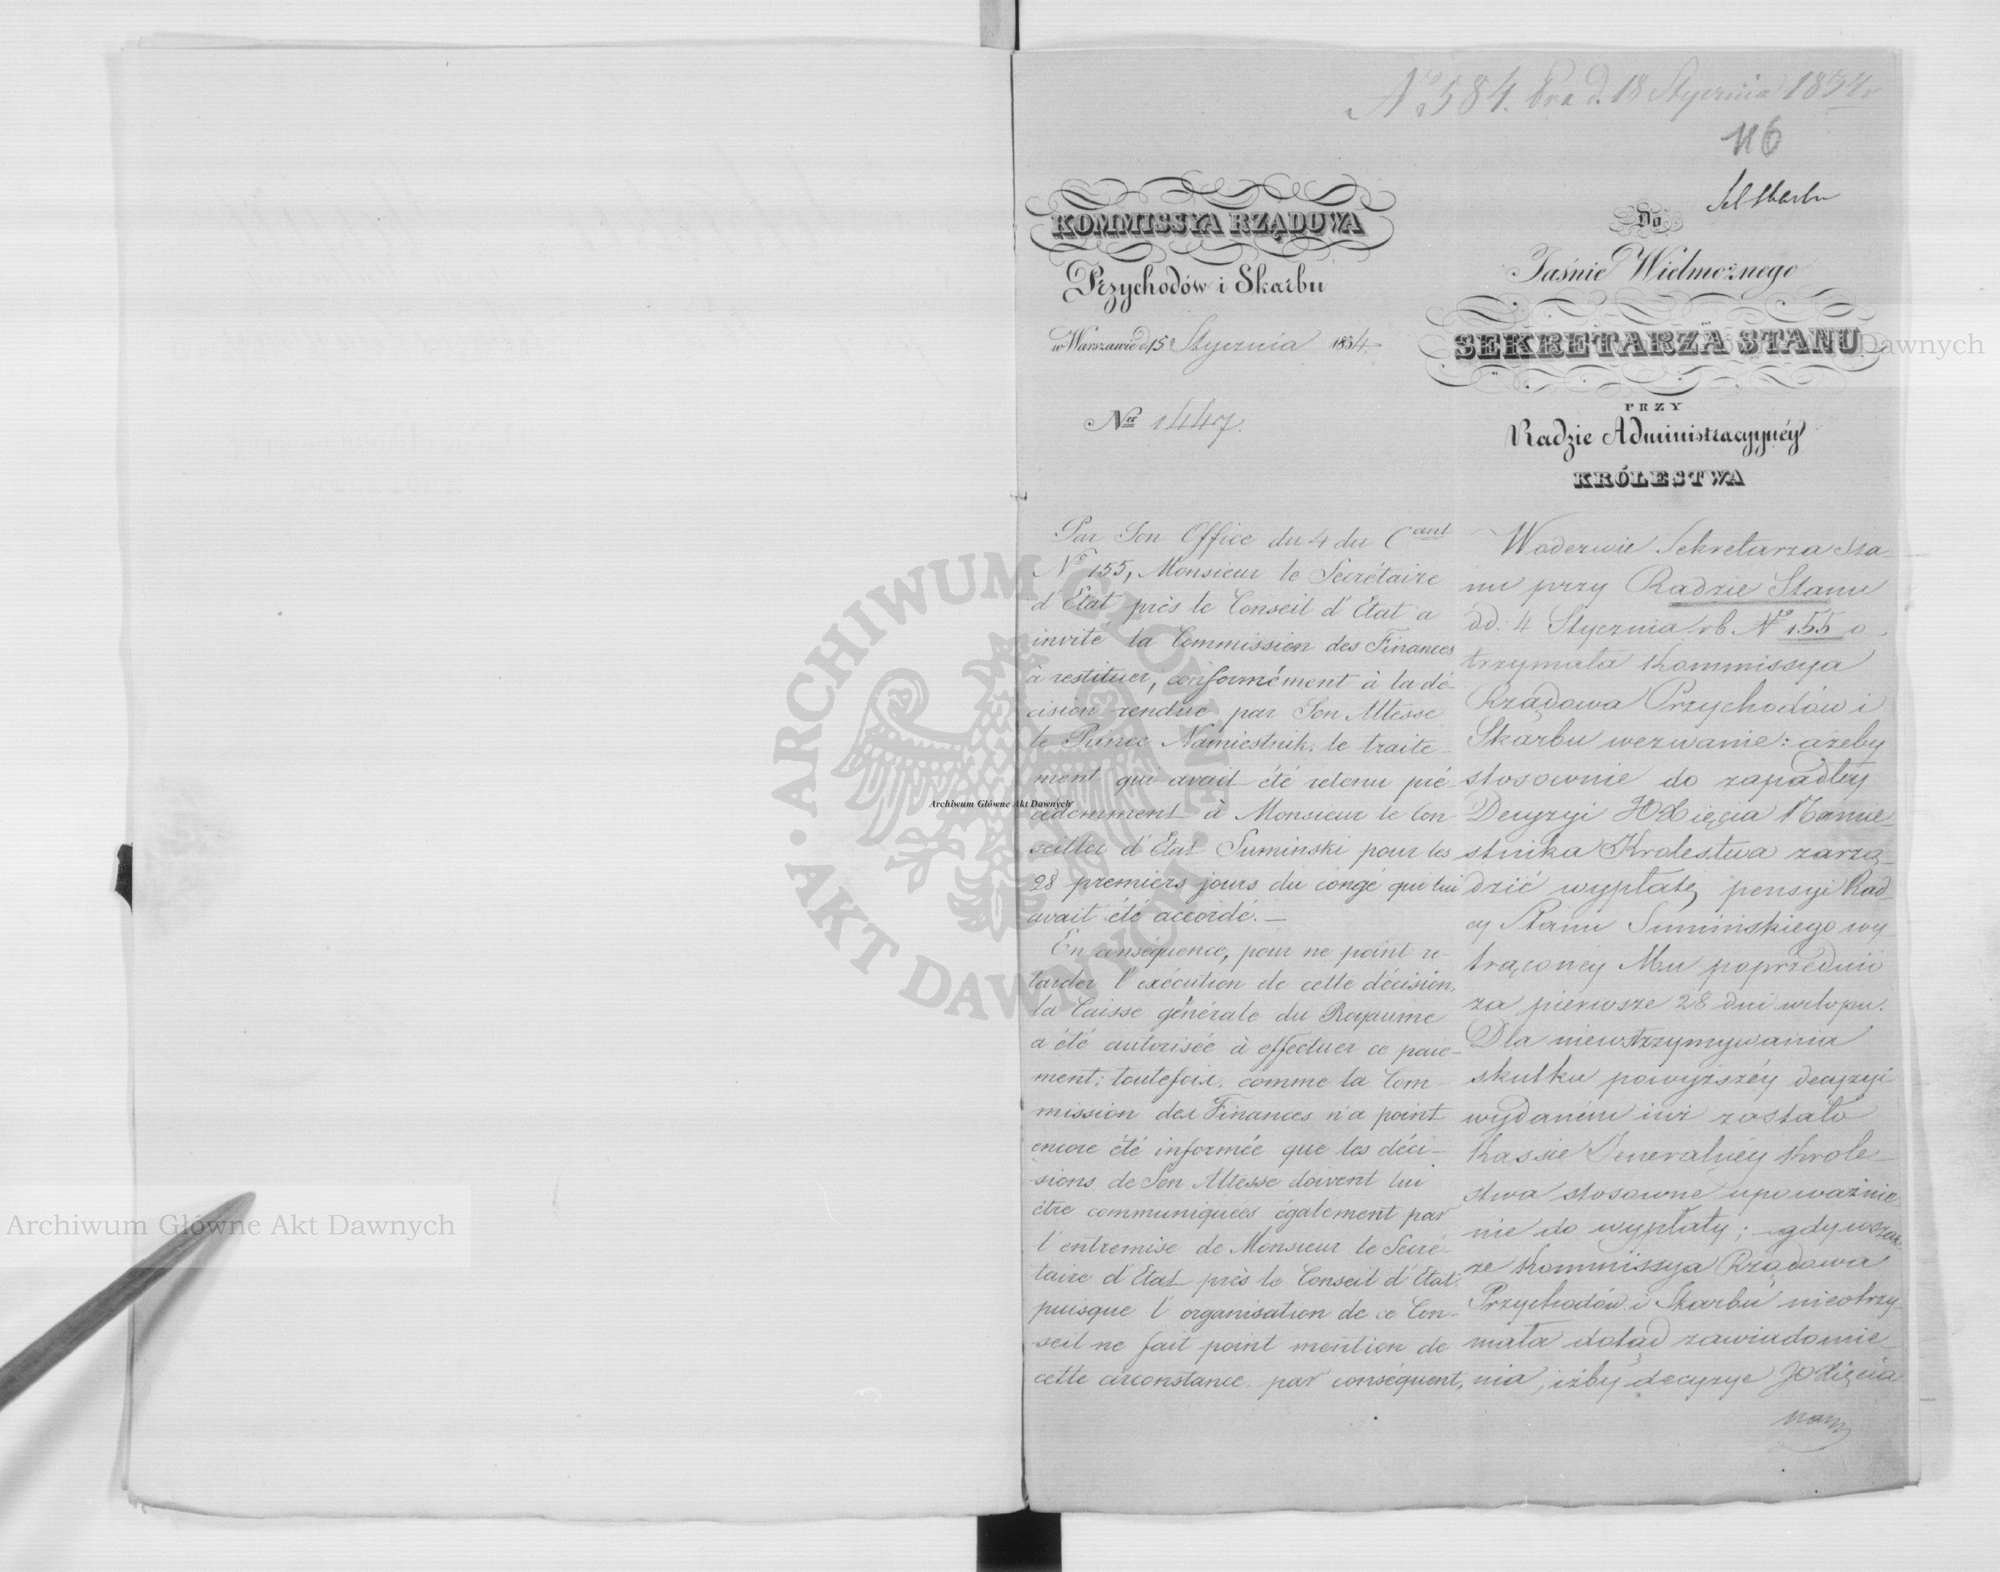 No 584. Pra d. 18 Stycznia 1834 r
116
KOMMISSYA RZĄDOWA
Przychodów i Skarbu
w Warszawie d. 15 Stycznia 1834.
Nr 1447.
Do
Jaśnie Wielmożnego
SEKRETARZA STANU
PRZY
Radzie Administracyynéy
KRÓLESTWA
Par Son Office du 4 du Cant
No 155, Monsieur le Secrétaire
d'Etat près le Conseil d'Etat a
invité la Commission des Finances
à restituer, conformément à la dé-
cision rendue par Son Altesse
le Prince Namiestnik, le traite-
ment qui avait été retenu pré-
cédemment à Monsieur le Con-
seiller d'Etat Suminski pour les
28 premiers jours du congé qui lui
avait été accordé. —
En conséquence, pour ne point re-
tarder l'exécution de cette décision,
la Caisse générale du Royaume
a été autorisée à effectuer ce paie-
ment; toutefois, comme la Com-
mission des Finances n'a point
encore été informée que les déci-
sions de Son Altesse doivent lui
être communiquées également par
l'entremise de Monsieur le Secré-
taire d'Etat près le Conseil d'Etat
puisque l'organisation de ce Con-
seil ne fait point mention de
cette circonstance. par conséquent,
Wodezwie Sekretarza Sta-
nu przy Radzie Stanu
dd. 4 Stycznia rb. No 155 o-
trzymała Kommissya
Rządowa Przychodów i
Skarbu wezwanie: ażeby
stosownie do zapadłéy
Decyzyi JOXięcia Namie-
stnika Krolestwa zarzą-
dzić wypłatę pensyi Rad-
cy Stanu Suminskiego wy-
trąconéy Mu poprzednio
za pierwsze 28 dni urlopu.
Dla niewstrzymywania
skutku powyższéy decyzyi
wydaném iuż zostało
Kassie Generalnéy Krole-
stwa stosowne upoważnie-
nie do wypłaty; gdy wszak-
że Kommissya Rządowa
Przychodów i Skarbu nieotrzy-
mała dotąd zawiadomie-
nia, iżby decyzye JOXięcia
Archiwum Główne Akt Dawnych
ARCHIWUM GŁÓWNE AKT DAWNYCH
Archiwum Główne Akt Dawnych
Dawnych